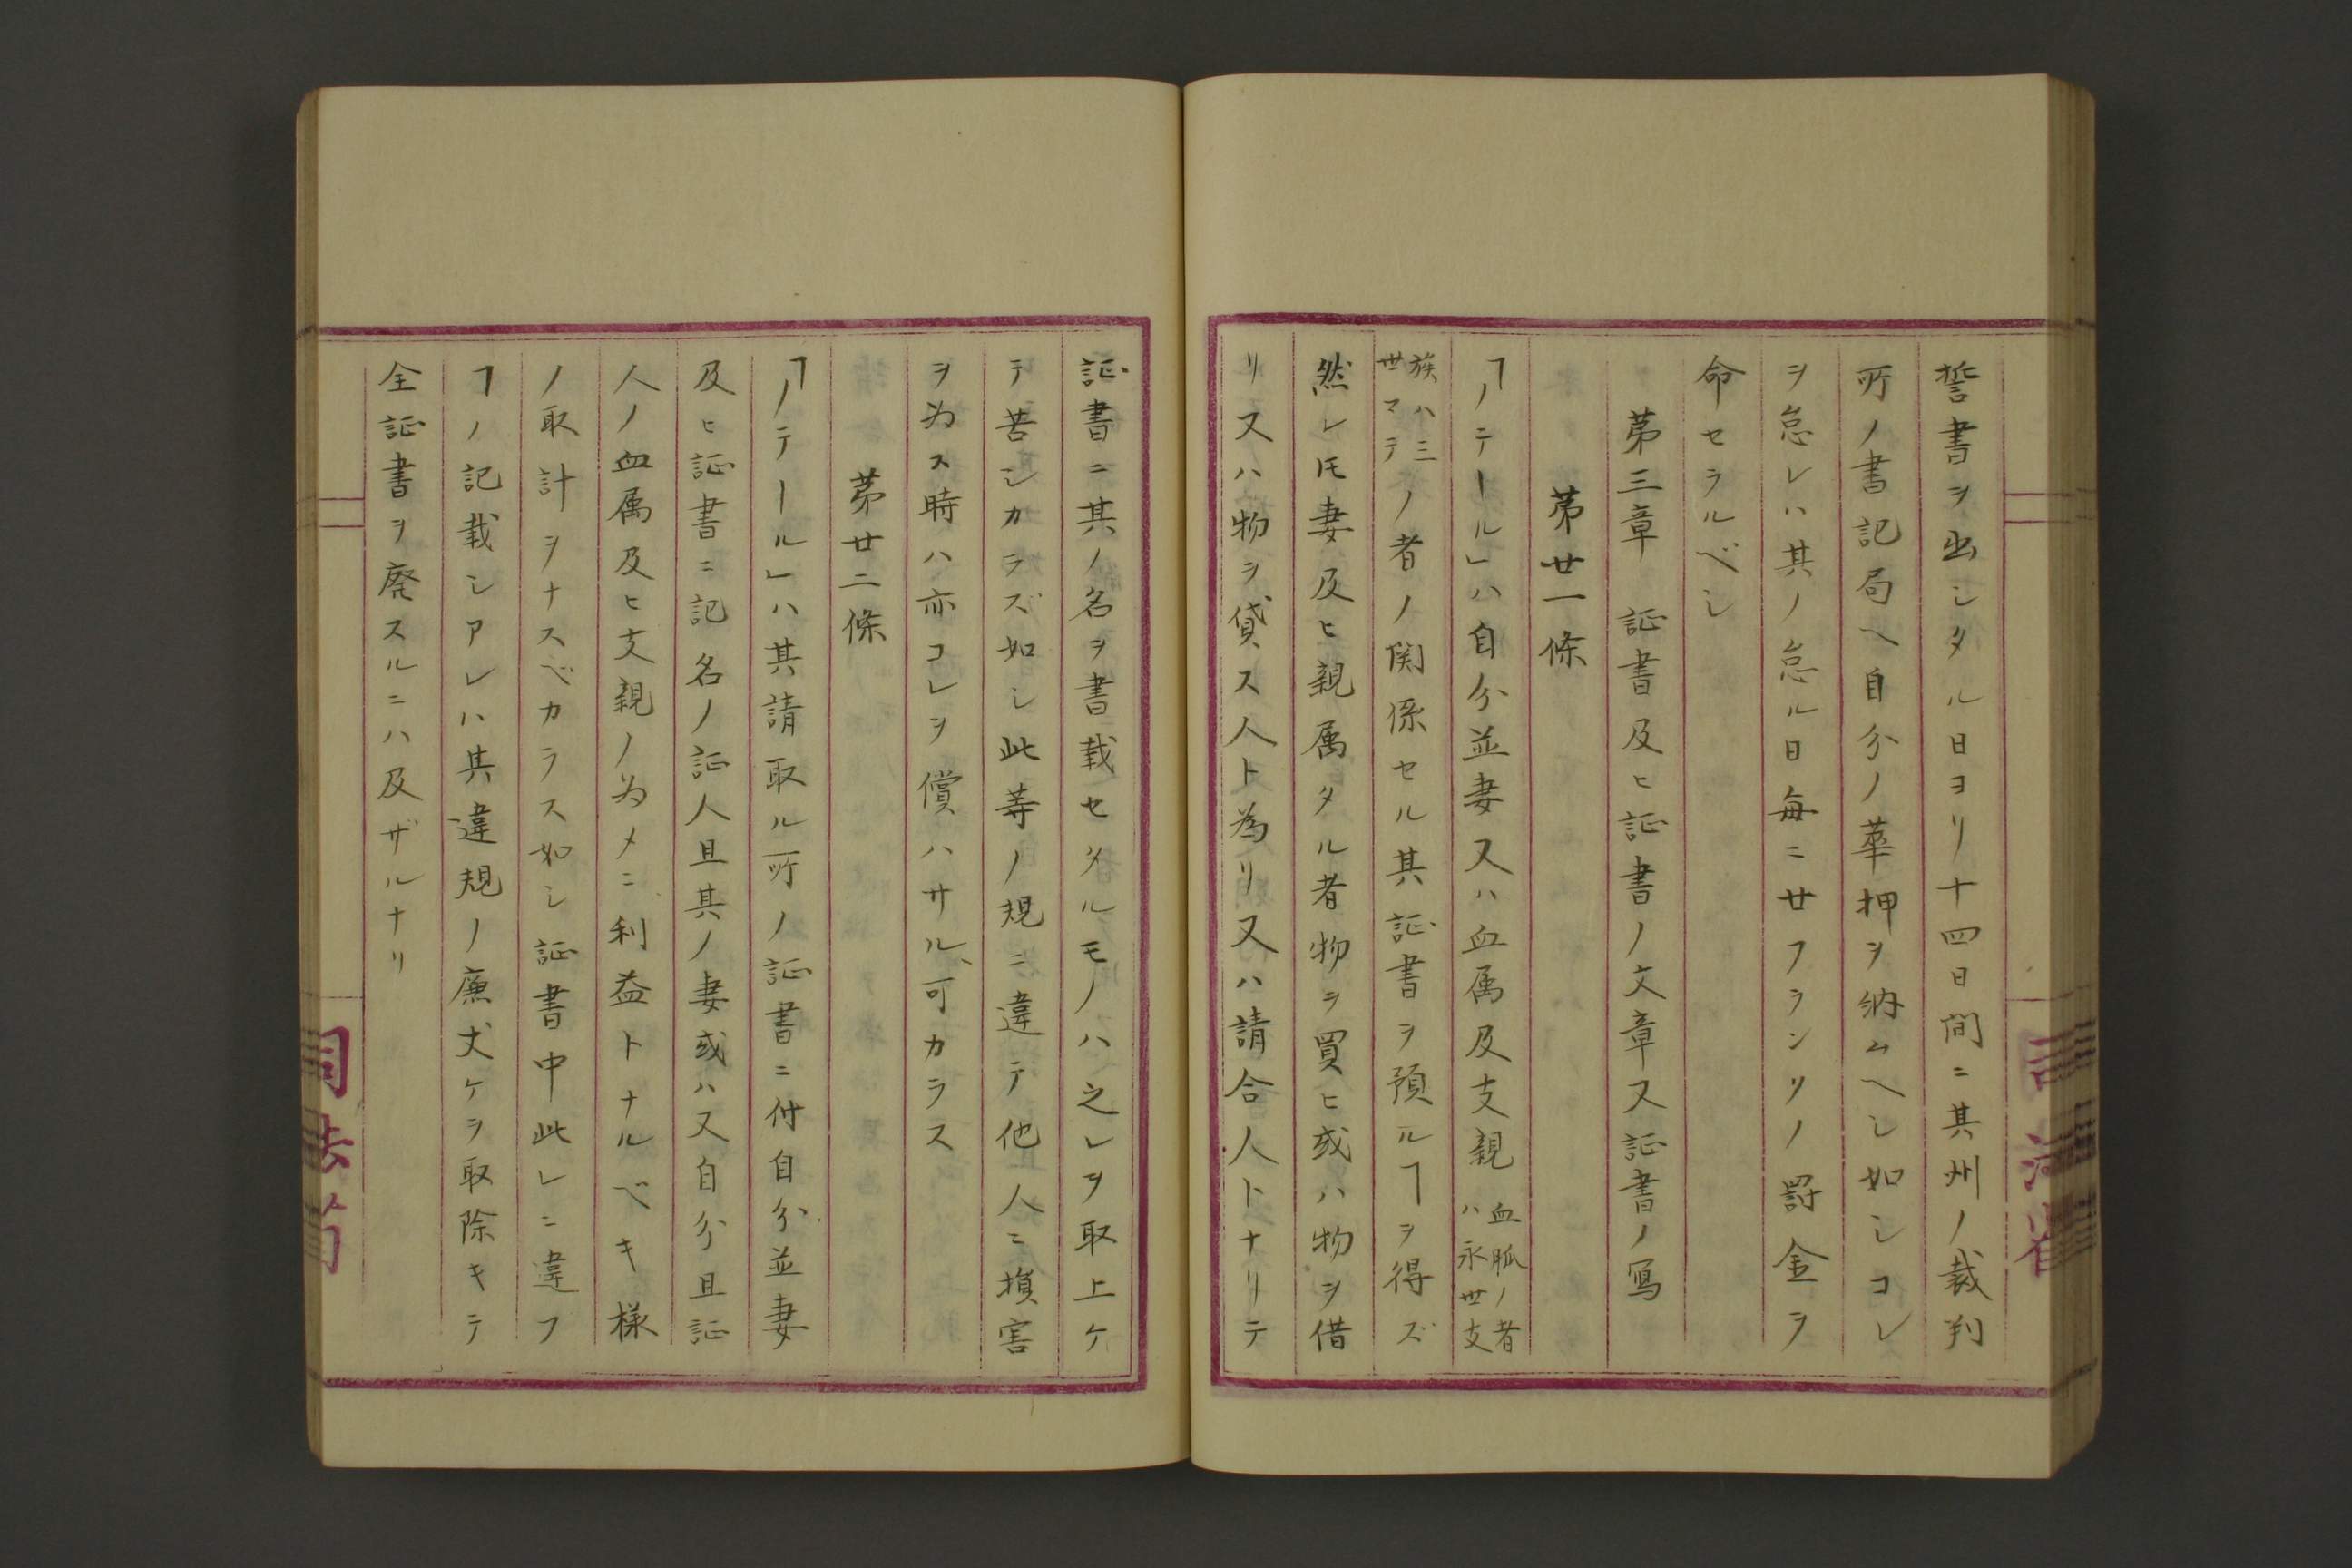 誓書ヲ出シタル日ヨリ十四日間ニ其州ノ裁判
所ノ書記局ヘ自分ノ華押ヲ納ムヘシ如シコレ
ヲ怠レハ其ノ怠ル日毎ニ廿フランリノ罸金ヲ
命セラルベシ
第三章 証書及ヒ証書ノ文章又証書ノ写
第廿一條
「ノテール」ハ自分並妻又ハ血属及支親血脈ノ者ハ永世支
族ハ三世マテノ者ノ関係セル其証書ヲ預ルヿヲ得ズ
然レ𪜈妻及ヒ親属タル者物ヲ買ヒ或ハ物ヲ借
リ又ハ物ヲ貸ス人ト為リ又ハ請合人トナリテ
証書ニ其ノ名ヲ書載セタルモノハ之レヲ取上ケ
テ苦シカラズ如シ此等ノ規ニ違テ他人ニ損害
ヲ为ス時ハ亦コレヲ償ハサル可カラス
第廿二條
「ノテール」ハ其請取ル所ノ証書ニ付自分並妻
及ヒ証書ニ記名ノ証人且其ノ妻或ハ又自分且証
人ノ血属及ヒ支親ノ为メニ利益トナルベキ様
ノ取計ヲナスベカラス如シ証書中此レニ違フ
ヿノ記載シアレハ其違規ノ廉丈ケヲ取除キテ
全証書ヲ廃スルニハ及ザルナリ
司法省